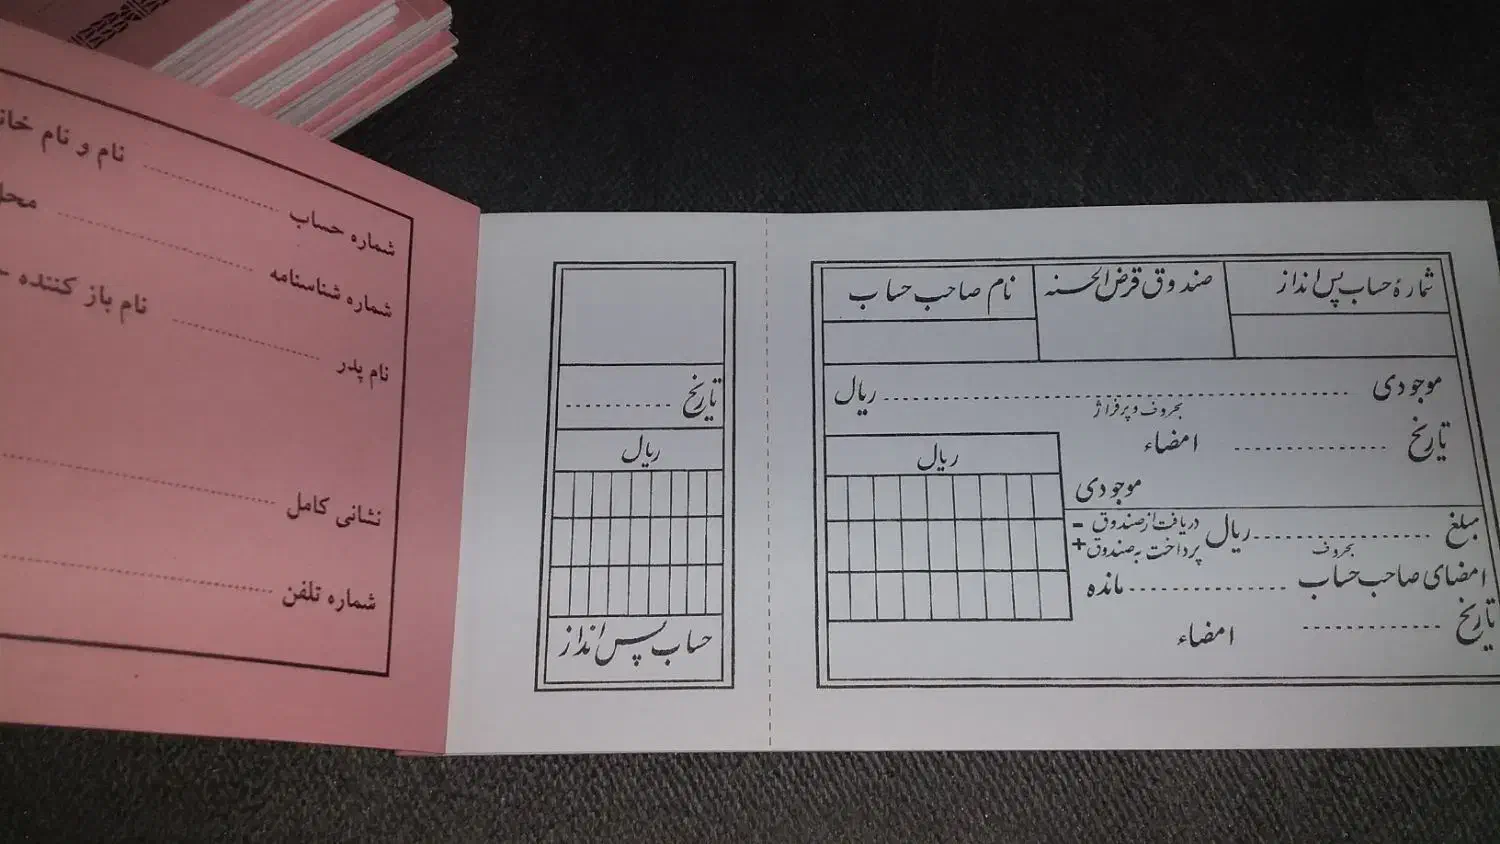 نام و نام
شماره حساب
شماره شناسنامه
نام باز کننده
نام پدر
نشانی کامل
شماره تلفن
تاریخ
ریال
حساب پس انداز
شمارهٔ حساب پس انداز
صندوق قرض الحسنه
نام صاحب حساب
موجودی ریال
بحروف و پرفراژ
تاریخ امضاء
ریال
موجودی
مبلغ ریال دریافت از صندوق -
بحروف پرداخت به صندوق +
امضای صاحب حساب مانده
تاریخ امضاء